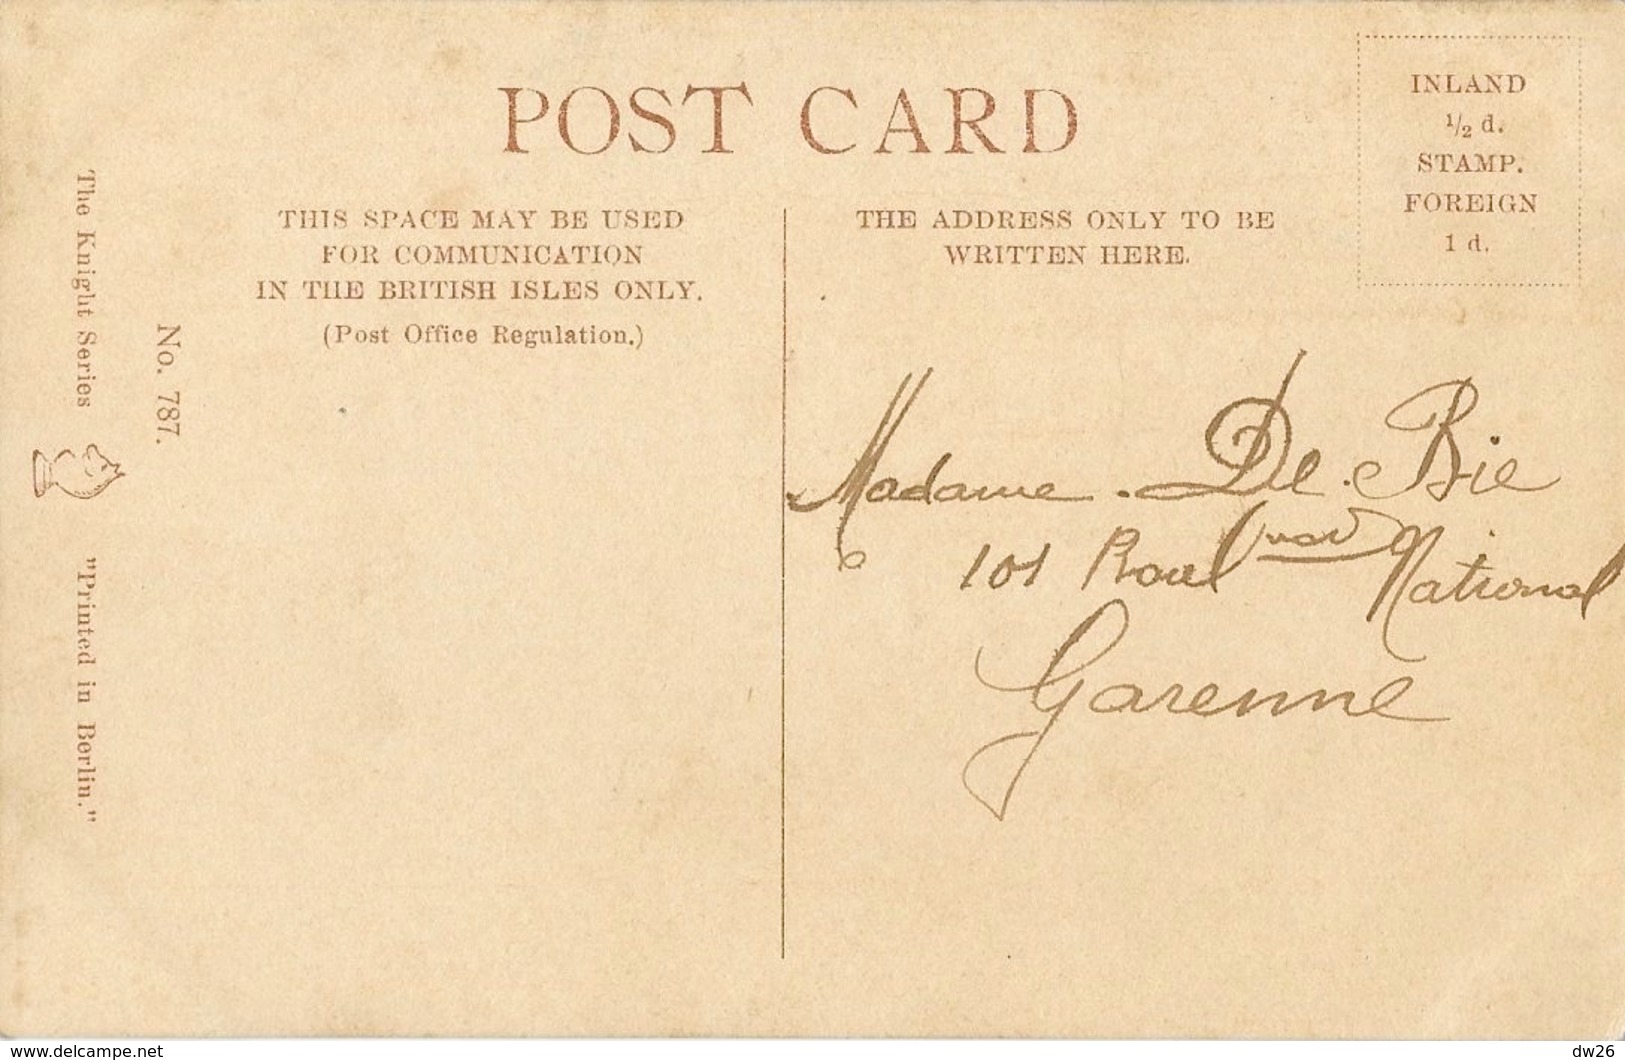 POST CARD
INLAND
1/2 d.
STAMP.
FOREIGN
1 d.
THIS SPACE MAY BE USED
FOR COMMUNICATION
IN THE BRITISH ISLES ONLY.
(Post Office Regulation.)
THE ADDRESS ONLY TO BE
WRITTEN HERE.
The Knight Series
No. 787.
"Printed in Berlin."
Madame. De. Bie
101 National
Garenne
www.delcampe.net
dw26